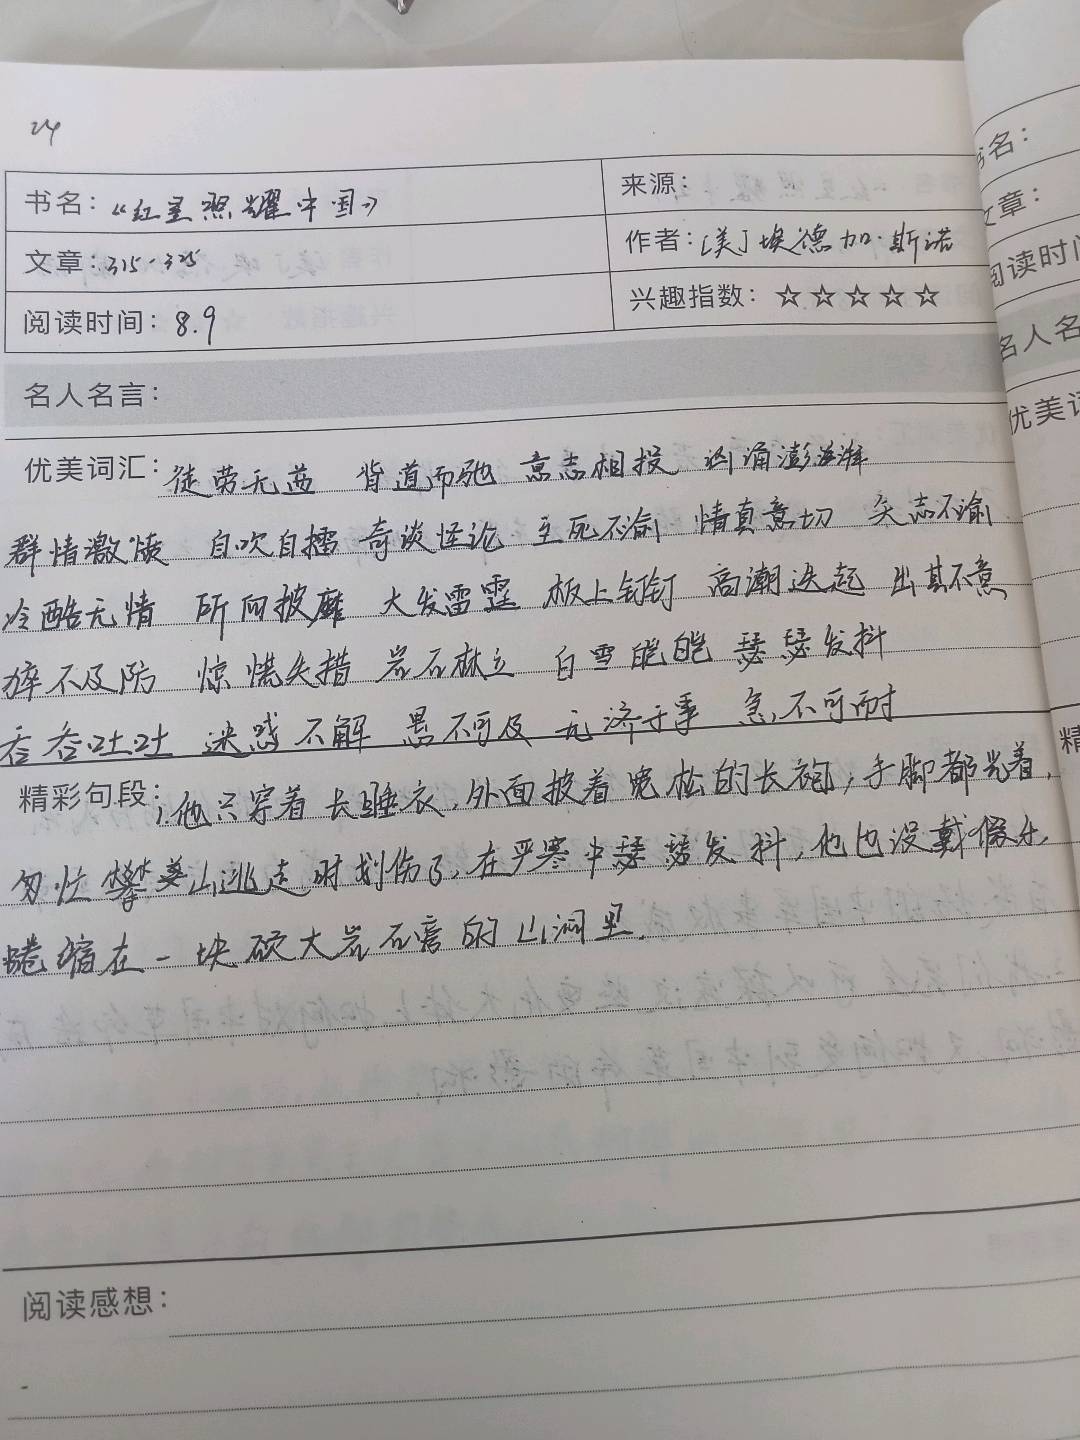 24
书名：《红星照耀中国》
来源：
文章：315-325
作者：[美]埃德加·斯诺
阅读时间：8.9
兴趣指数：☆☆☆☆☆
名人名言：
优美词汇：徒劳无益 背道而驰 意志相投 汹涌澎湃
群情激愤 自吹自擂 奇谈怪论 至死不渝 情真意切 矢志不渝
冷酷无情 所向披靡 大发雷霆 板上钉钉 高潮迭起 出其不意
猝不及防 惊慌失措 岩石林立 白雪皑皑 瑟瑟发抖
吞吞吐吐 迷惑不解 愚不可及 无济于事 急不可耐
精彩句段：1.他只穿着长睡衣,外面披着宽松的长袍,手脚都光着,
匆忙攀美山逃走时划伤了,在严寒中瑟瑟发抖,他也没戴假牙,
蜷缩在一块硕大岩石旁的山洞里.
阅读感想：
书名：
文章：
阅读时间
名人名
优美词
精